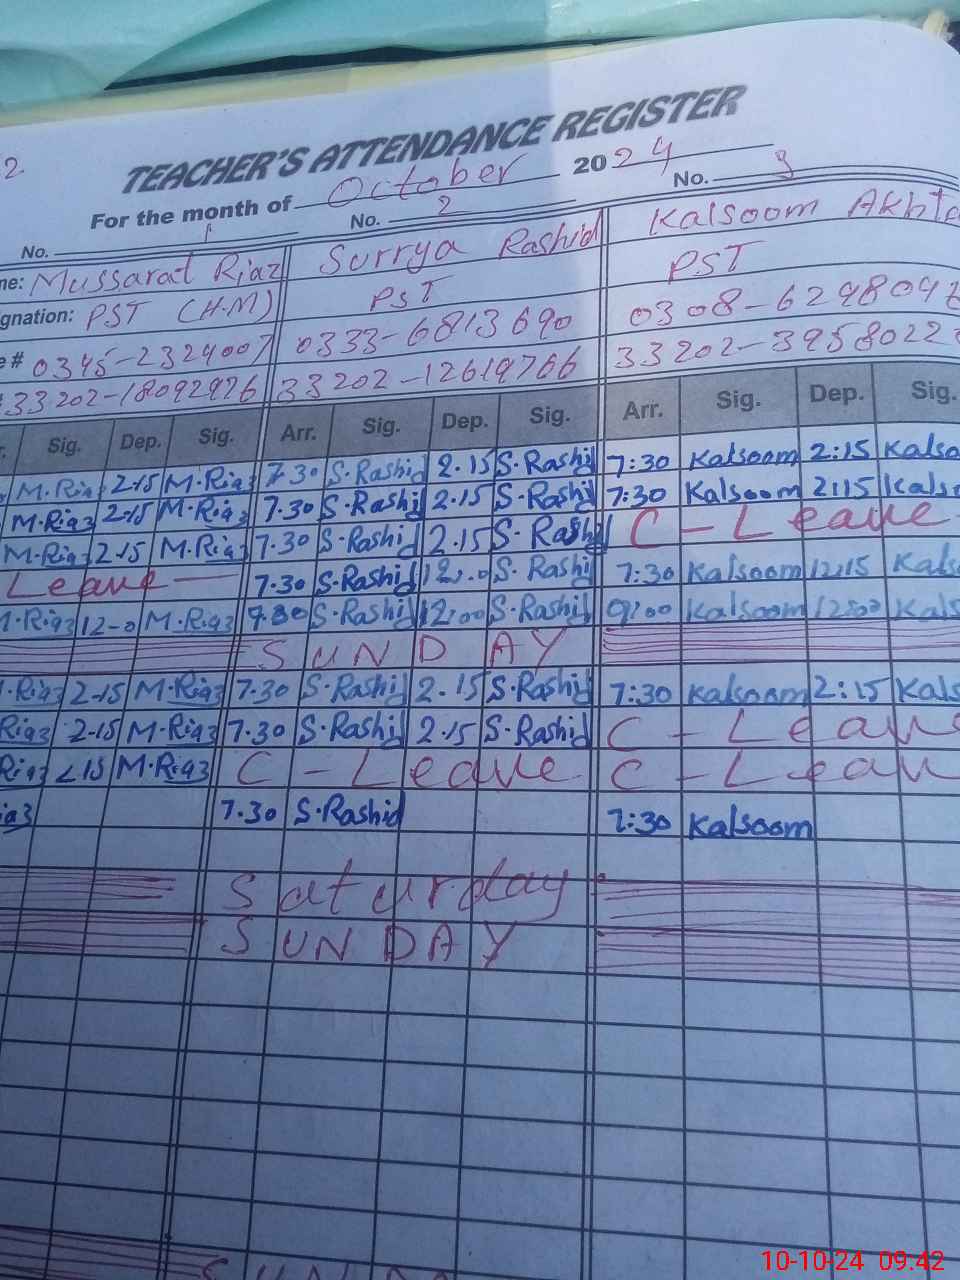 2
TEACHER'S ATTENDANCE REGISTER
For the month of October 2024
No. 1 No. 2 No. 3
ne: Mussarat Riaz Surrya Rashid Kalsoom Akhta
gnation: PST (H.M) PST PST
e# 0345-2324007 0333-6813690 0308-629804
33202-18092976 33202-12619766 33202-3958022
r. Sig. Dep. Sig. Arr. Sig. Dep. Sig. Arr. Sig. Dep. Sig.
M.Riaz 2-15 M.Riaz 7.30 S.Rashid 2.15 S.Rashid 7:30 Kalsoom 2:15 Kalso
M.Riaz 2-15 M.Riaz 7.30 S.Rashid 2.15 S.Rashid 7:30 Kalsoom 2:15 Kalso
M.Riaz 2-15 M.Riaz 7.30 S.Rashid 2.15 S.Rashid C - Leave
Leave 7.30 S.Rashid 12.0 S.Rashid 7:30 Kalsoom 12:15 Kals
M.Riaz 12-0 M.Riaz S.Rashid 12:00 S.Rashid 09:00 Kalsoom 12:00 Kals
SUNDAY
.Riaz 2-15 M.Riaz 7.30 S.Rashid 2.15 S.Rashid 7:30 Kalsoom 2:15 Kals
Riaz 2-15 M.Riaz 7.30 S.Rashid 2.15 S.Rashid C - Leave
Riaz 2-15 M.Riaz C - Leave C - Leav
iaz 7.30 S.Rashid 7:30 Kalsoom
Saturday
SUNDAY
SUNDA
10-10-24 09.42